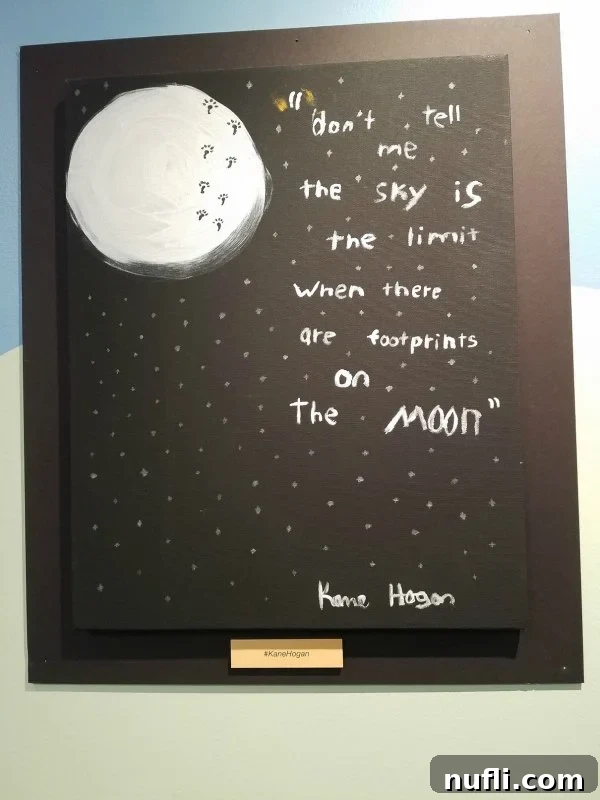 "don't tell
me
the sky is
the limit
when there
are footprints
on
The MOON"
Kane Hogan
#KaneHogan
nufli.com